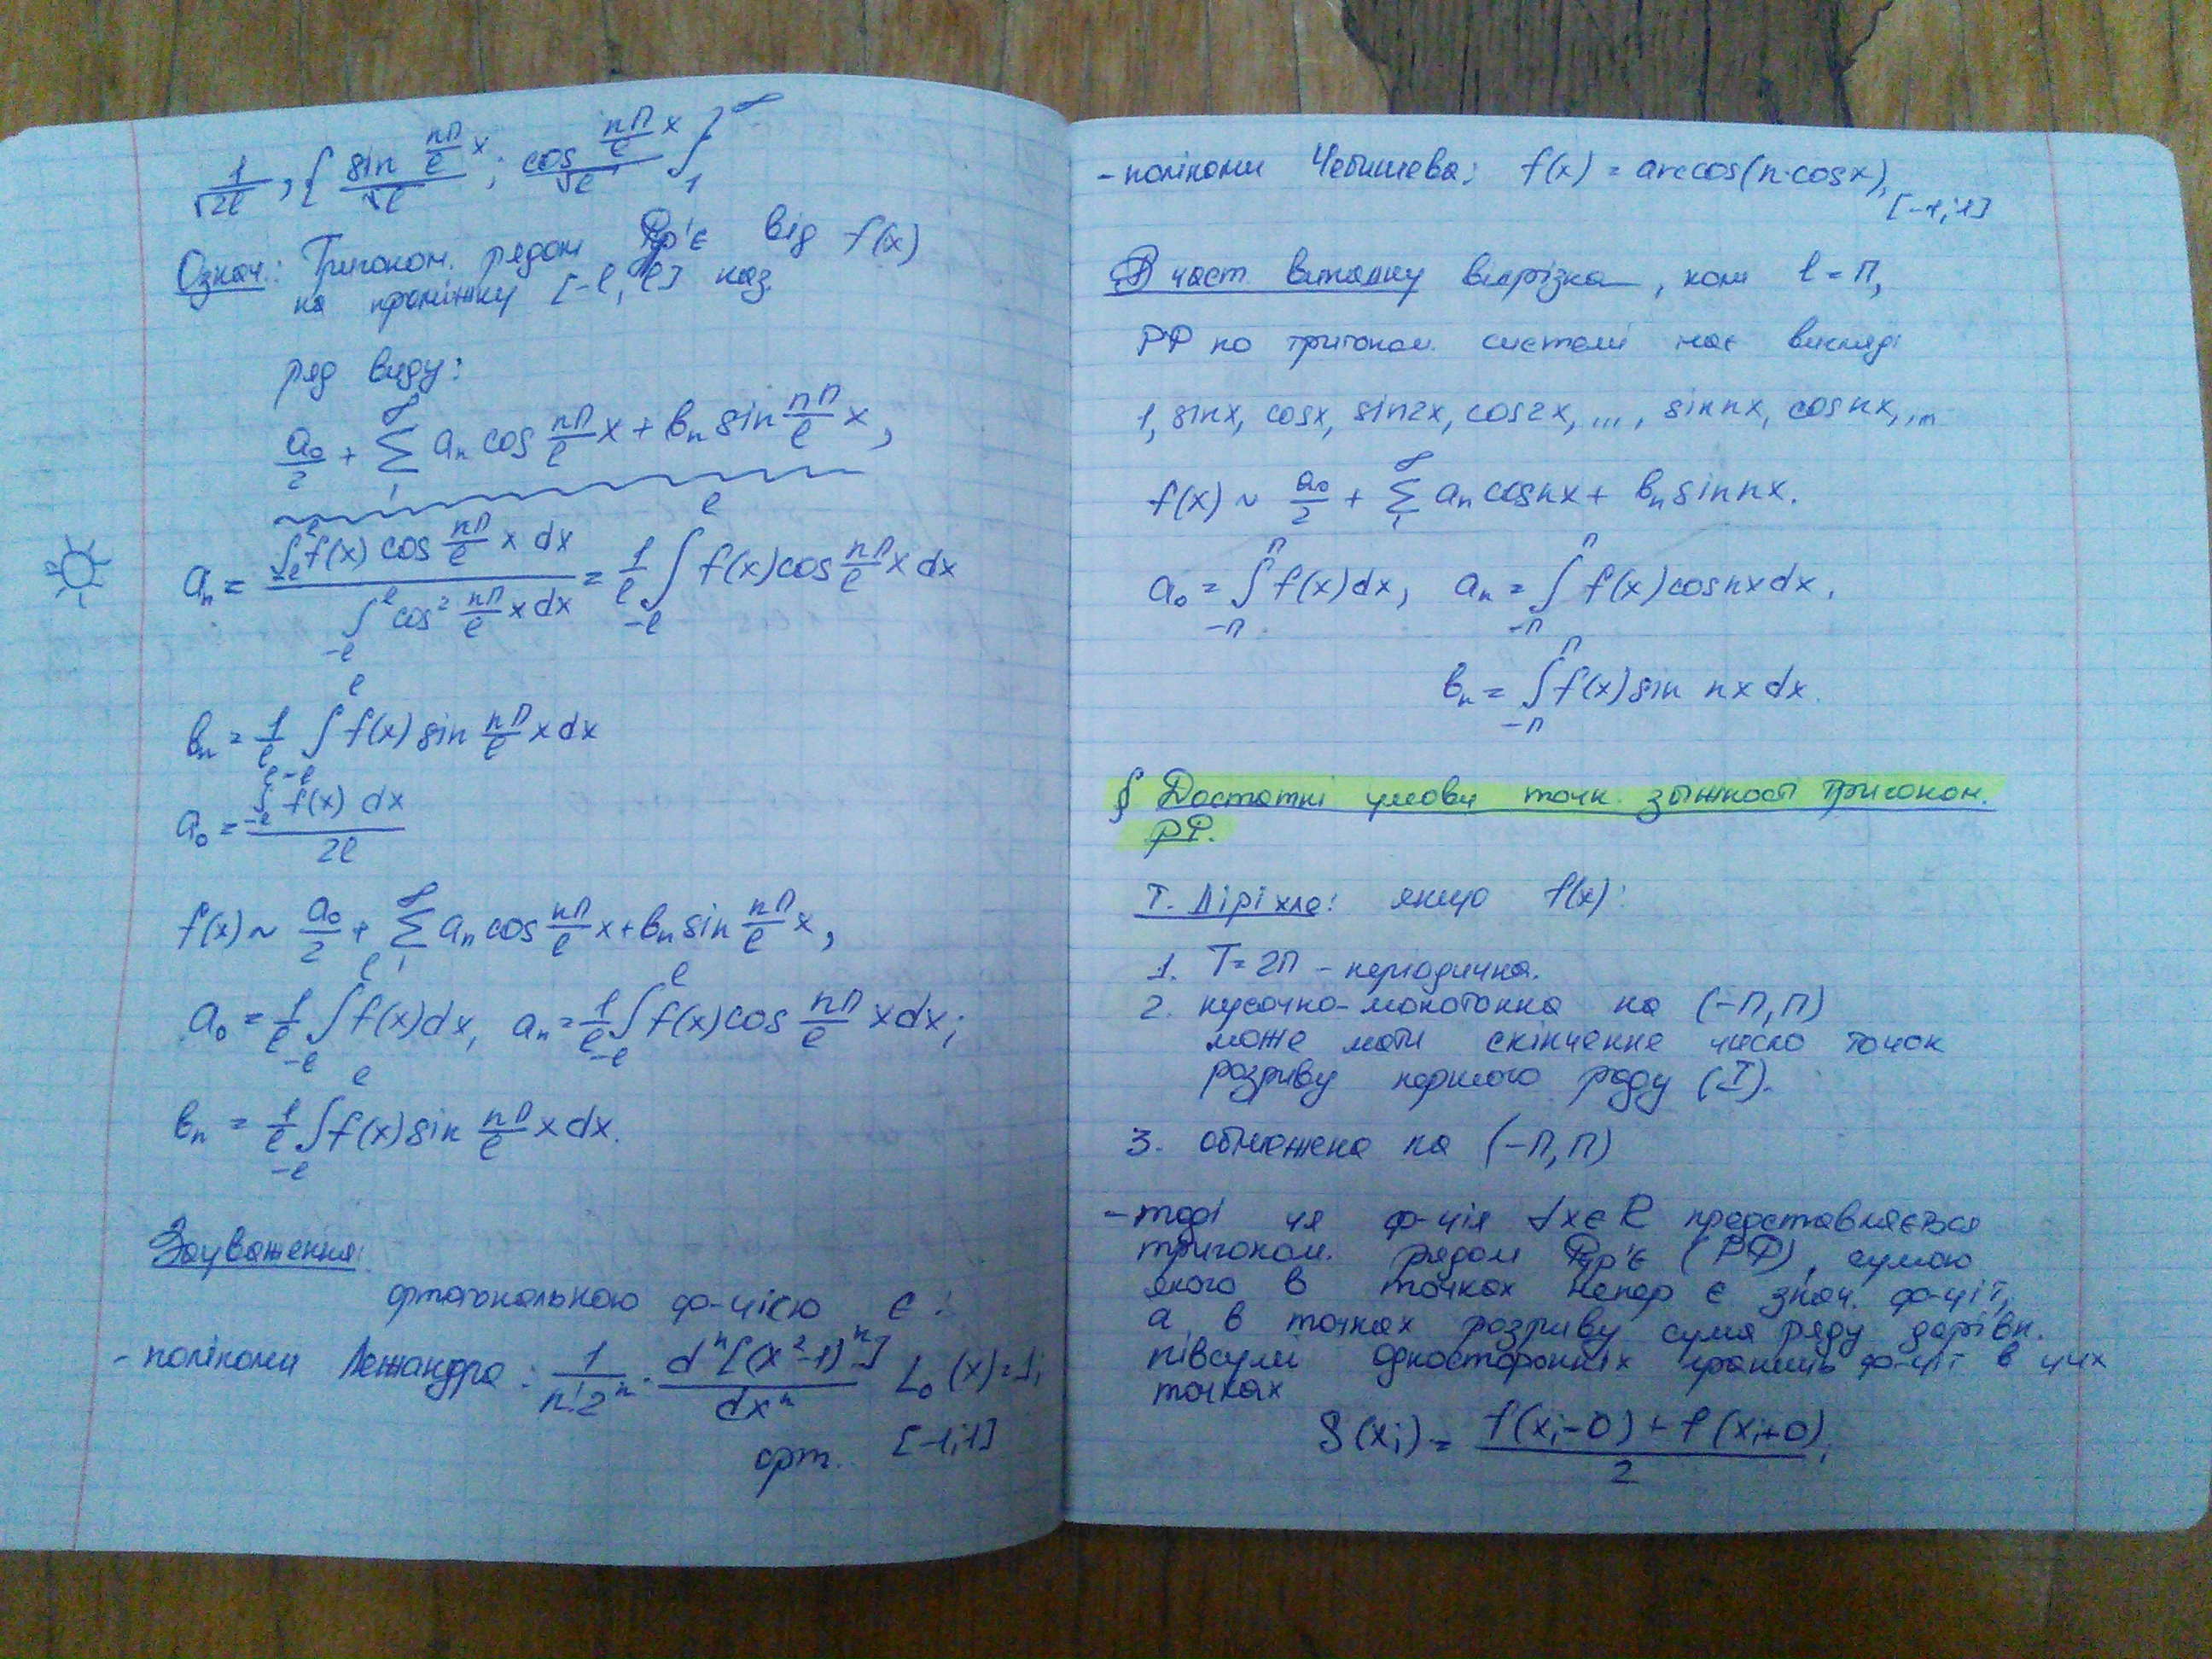 1/√2l, { sin nπ/l x / √l ; cos nπ/l x / √l }₁^∞
Означ.: Тригоном. рядом Фур'є від f(x)
на проміжку [-l, l] наз.
ряд виду:
a₀/2 + ∑₁^∞ aₙ cos nπ/l x + bₙ sin nπ/l x,
aₙ = ∫₋ₗ^l f(x) cos nπ/l x dx / ∫₋ₗ^l cos² nπ/l x dx = 1/l ∫₋ₗ^l f(x) cos nπ/l x dx
bₙ = 1/l ∫₋ₗ^l f(x) sin nπ/l x dx
a₀ = ∫₋ₗ^l f(x) dx / 2l
f(x) ~ a₀/2 + ∑₁^∞ aₙ cos nπ/l x + bₙ sin nπ/l x,
a₀ = 1/l ∫₋ₗ^l f(x) dx, aₙ = 1/l ∫₋ₗ^l f(x) cos nπ/l x dx;
bₙ = 1/l ∫₋ₗ^l f(x) sin nπ/l x dx.
Зауваження:
ортогональною ф-цією є:
- поліноми Лежандра: 1/n!2ⁿ · dⁿ[(x²-1)ⁿ]/dxⁿ L₀(x)=1;
орт. [-1;1]
- поліноми Чебишева: f(x) = arccos(n·cosx),
[-1;1]
В част. випадку відрізка, коли l = π,
РФ по тригоном. системі має вигляд:
1, sinx, cosx, sin2x, cos2x, ..., sin nx, cos nx, ...
f(x) ~ a₀/2 + ∑₁^∞ aₙ cos nx + bₙ sin nx.
a₀ = ∫₋π^π f(x) dx, aₙ = ∫₋π^π f(x) cos nx dx,
bₙ = ∫₋π^π f(x) sin nx dx.
§ Достатні умови точк. збіжності тригоном.
РФ.
Т. Діріхле: якщо f(x):
1. T = 2π - періодична.
2. кусочно-монотонна на (-π, π)
може мати скінченне число точок
розриву першого роду (I).
3. обмежена на (-π, π)
- тоді ця ф-ція ∀x∈R представляється
тригоном. рядом Фур'є (РФ), сумою
якого в точках непер є знач. ф-ції,
а в точках розриву сума ряду дорівн.
півсумі односторонніх границь ф-ції в цих
точках
S(xᵢ) = f(xᵢ-0) + f(xᵢ+0) / 2.